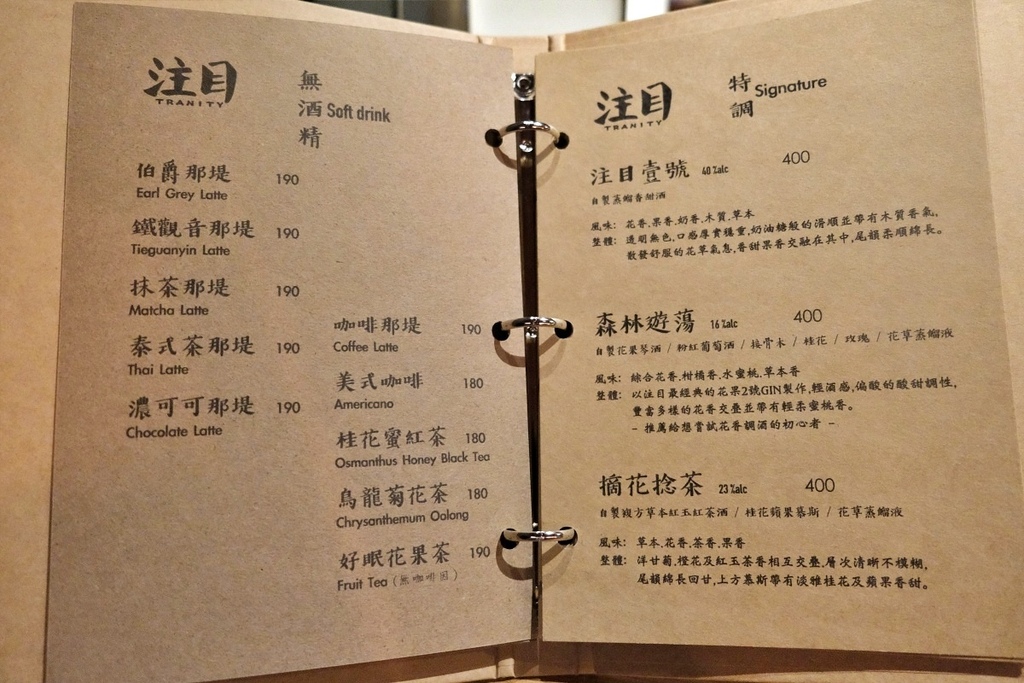 注目
TRANITY
無酒精 Soft drink
伯爵那堤 190
Earl Grey Latte
鐵觀音那堤 190
Tieguanyin Latte
抹茶那堤 190
Matcha Latte
泰式茶那堤 190
Thai Latte
濃可可那堤 190
Chocolate Latte
咖啡那堤 190
Coffee Latte
美式咖啡 180
Americano
桂花蜜紅茶 180
Osmanthus Honey Black Tea
烏龍菊花茶 180
Chrysanthemum Oolong
好眠花果茶 190
Fruit Tea (無咖啡因)
注目
TRANITY
特調 Signature
注目壹號 60%alc 400
自製蒸餾香甜酒
風味: 花香.果香.奶香.木質.草本
整體: 透明無色,口感厚實穩重,奶油糖般的滑順並帶有木質香氣,
散發舒服的花草氣息,香甜果香交融在其中,尾韻柔順綿長。
森林遊蕩 16%alc 400
自製花果琴酒 / 粉紅葡萄酒 / 接骨木 / 桂花 / 玫瑰 / 花草蒸餾液
風味: 綜合花香.柑橘香.水蜜桃.草本香
整體: 以注目最經典的花果2號GIN製作,輕酒感,偏酸的酸甜調性,
豐富多樣的花香交疊並帶有輕柔蜜桃香。
- 推薦給想嘗試花香調酒的初心者 -
摘花捻茶 23%alc 400
自製複方草本紅玉紅茶酒 / 桂花蘋果慕斯 / 花草蒸餾液
風味: 草本.花香.茶香.果香
整體: 洋甘菊,橙花及紅玉茶香相互交疊,層次清晰不模糊,
尾韻綿長回甘,上方慕斯帶有淡雅桂花及蘋果香甜。